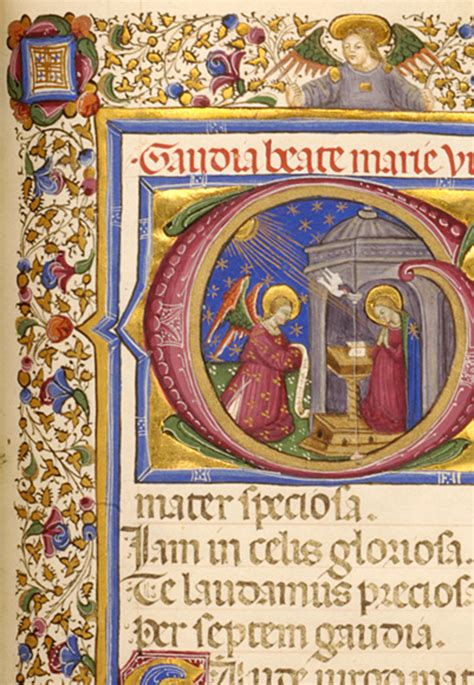 Gaudia beate marie vi
mater speciosa.
Iam in celis gloriosa.
Te laudamus precios
Per septem gaudia.
Gaude virgo mar